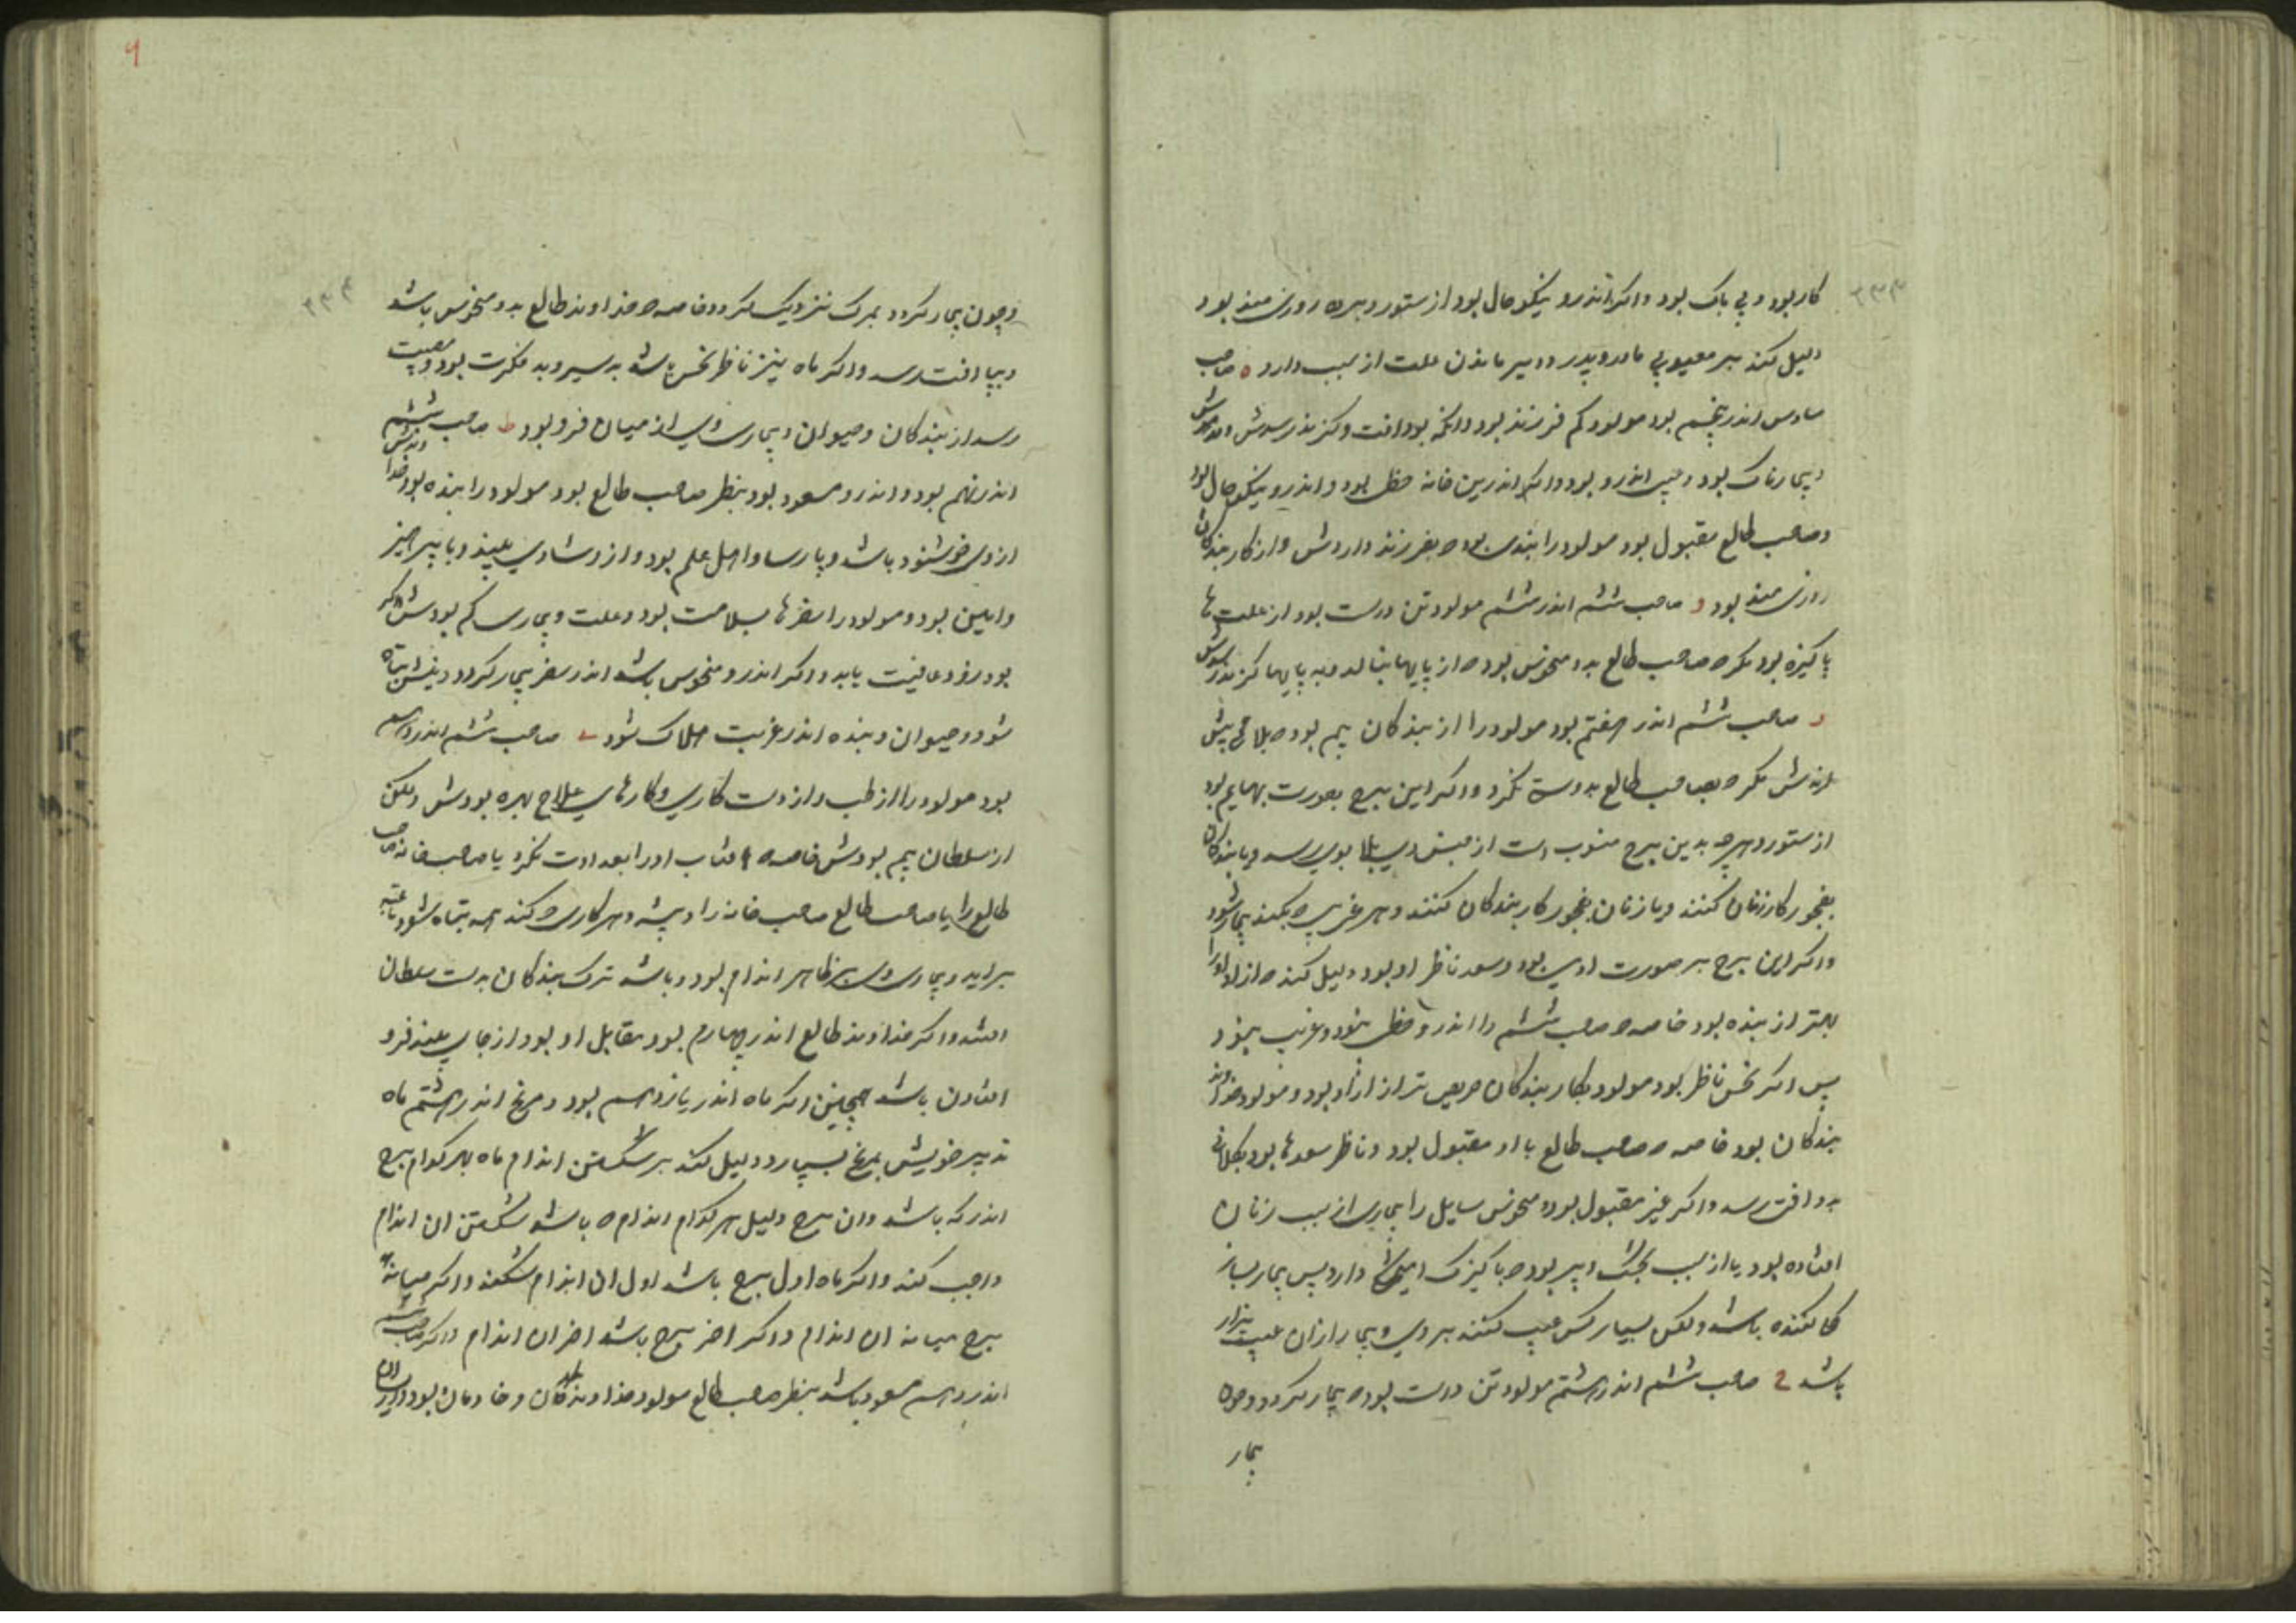 ۳۳۳
کار بود و بی باک بود و اکر اندرو نیکو حال بود از ستور و برده روزی مند بود
دلیل کند بر معیوبی مادر و پدر و دیر ماندن علت از سبب دارو ه صاحب
سادس اندر پنجم بود مولود کم فرزند بود و انکه بود افت و کزند رسدش
و بیمارناک بود و اندرو بود و اکر اندرین خانه حظ بود و اندرو نیکو حال بود
و صاحب طالع مقبول بود مولود را بنده بود که بفرزند داردش و از کار بندکان
روزی مند بود و صاحب ششم اندر ششم مولود تن درست بود از علت ها
پاکیزه بود مکر که صاحب طالع بدو منحوس بود که از پایها بنالد و به پایها کزند رسدش
ر صاحب ششم اندر هفتم بود مولود را از بندکان بیم بود که بلاحی پیش
مکر که بصاحب طالع بدوستی نکرد و اکر این برج بصورت بهایم بود
از ستور و هرچه بدین برج منسوب است از جنس وی بلا بوی رسد و یا بندکان
بفجور کار زنان کنند و یا زنان بفجور کار بندکان کنند و هر غریبی که بکند بیمار شود
و اکر این برج بر صورت ادمی بود و سعد ناظر او بود دلیل کند که ازاد او را
بهتر از بنده بود خاصه که صاحب ششم را اندرو حظ نبود و غریب نبود
پس اکر نحس ناظر بود مولود بکار بندکان حریص تر از ازاد بود و مولود خداوند
بندکان بود خاصه که صاحب طالع با او مقبول بود و ناظر سعدها بود
بدو افت رسد و اکر غیر مقبول بود و منحوس سایل را بیماری از سبب زنان
افتاده بود یا از سبب بود که با کنیزک دارد پس بیمار بسیار
کننده باشد و لکن بسیار کس عیب کنند بر وی و بیمار از ان عیب بیزار
باشد ح صاحب ششم اندر هشتم مولود تن درست بود که بیمار نکردد و چون
بیمار
۹
۳۳۴
و چون بیمار کردد بمرک نزدیک کردد خاصه که خداوند طالع بدو منحوس باشد
و بپا افت رسد و اکر ماه نیز ناظر نحس باشد بد سیر و بد فکرت بود و مصیبت
رسد از بندکان و حیوان و بیماری وی از میان فرو بود ط صاحب ششم
اندر نهم بود و اندرو مسعود بود بنظر صاحب طالع بود مولود را بنده بود خدا
از وی خوشنود باشد و پارسا و اهل علم بود و از و شادی بیند و با پرهیز
و امین بود و مولود را سفرها بسلامت بود و علت و بیماری کم بودش و اکر
بود زود عافیت یابد و اکر اندرو منحوس باشد اندر سفر بیمار کردد و تباه
شود و حیوان و بنده اندر غربت هلاک شود ی صاحب ششم اندر دهم
بود مولود را از طب و از دست کاری و کارهای علاج بهره بودش و لکن
از سلطان بیم بودش خاصه که افتاب او را بعداوت نکرد یا صاحب خانه صاحب
طالع را یا صاحب طالع صاحب خانه را و پیشه و هر کاری که کند همه تباه شود
براید و بیماری وی بر ظاهر اندام بود و باشد ترک بندکان بدست سلطان
افتد و اکر خداوند طالع اندر چهارم بود مقابل او بود از جای بلند فرو
افتادن باشد همچنین اکر ماه اندر یازدهم بود و مریخ اندر هشتم ماه
تدبیر خویش بمریخ بسپارد دلیل کند بر شکستن اندام ماه بهر کدام برج
اندر که باشد و ان برج دلیل هر کدام اندام که باشد شکستن ان اندام
واجب کند و اکر ماه اول برج باشد اول ان اندام شکند و اکر میانه
برج میانه ان اندام و اکر اخر برج باشد اخر ان اندام و اکر صاحب ششم
اندر دهم مسعود باشد بنظر صاحب طالع مولود خداوند بندکان و خادمان بود